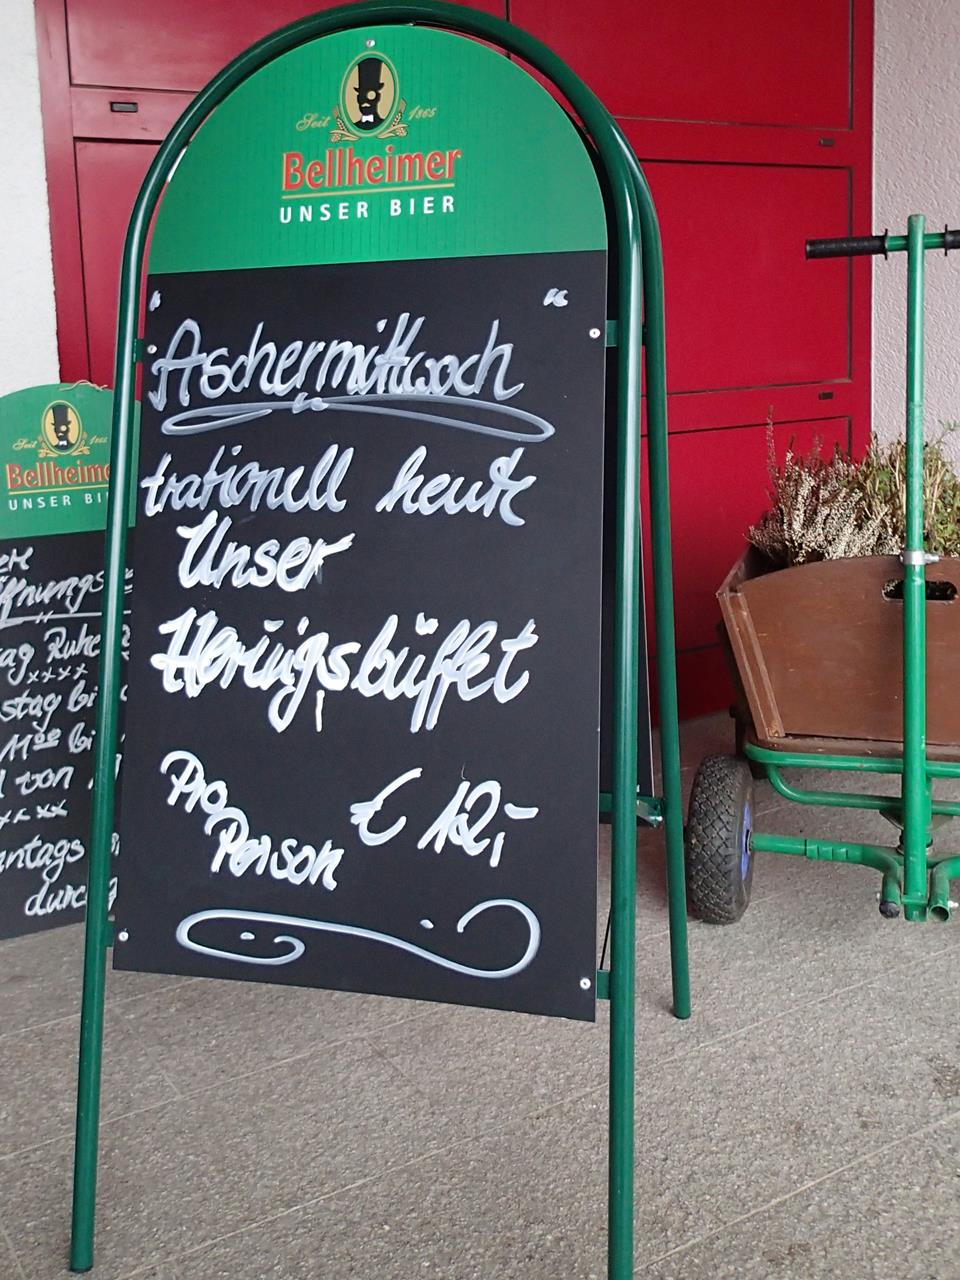 Seit 1865
Bellheimer
UNSER BIER
"Aschermittwoch"
trationell heute
Unser
Heringsbüffet
Pro
Person
€ 12,-
Seit 1865
Bellheime
UNSER BI
ffnungs
ag Ruhe
xxxx
stag bi
11 00 bi
von
xx
ntags
durc